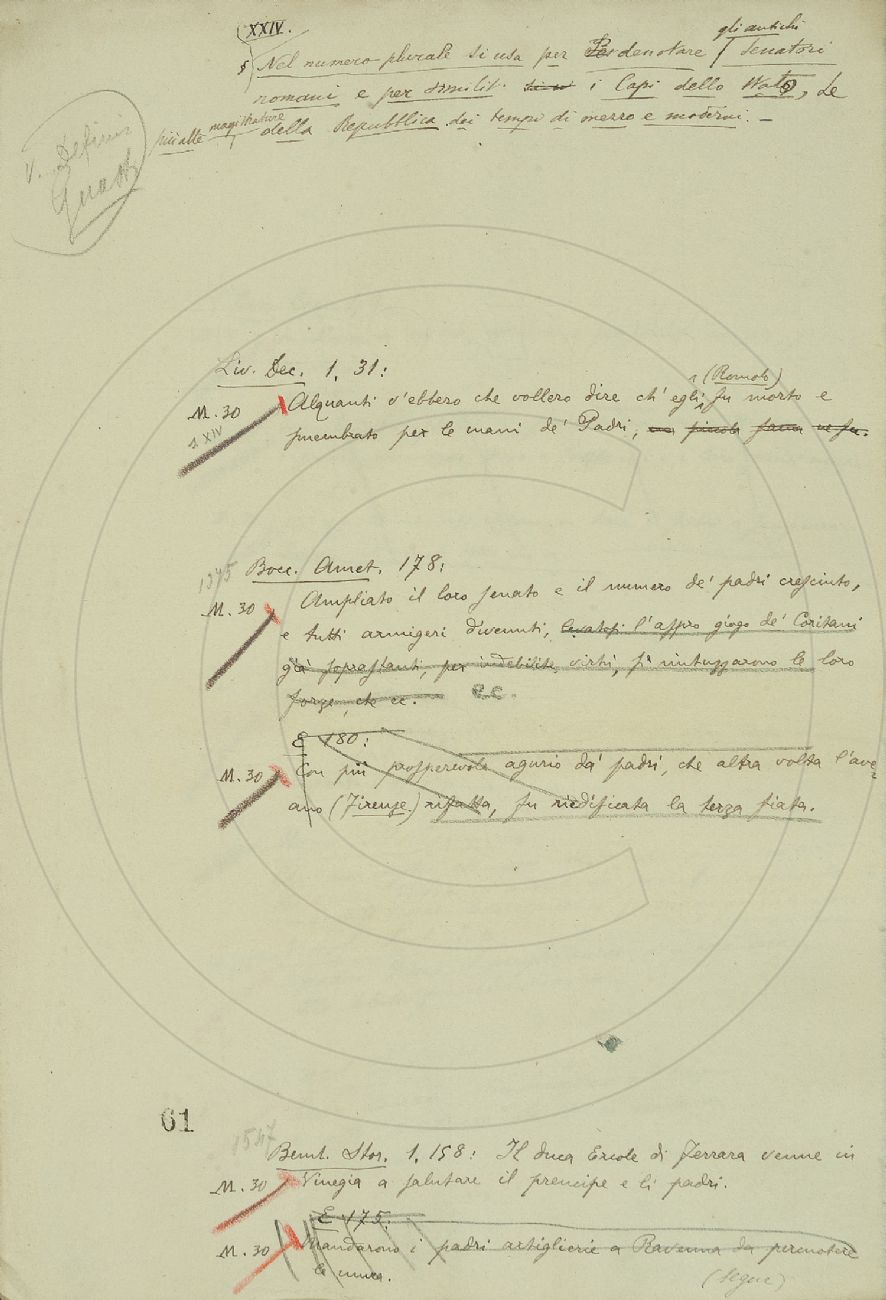 XXIV.
§ Nel numero plurale si usa per denotare gli antichi Senatori
romani e per simılit. i Capi dello Stato, Le
più alte magistrature della Repubblica dei tempi di mezzo e moderni. –
V. Definiz.
Liv. Dec. 1. 31:
M. 30 Alquanti v'ebbero che vollero dire ch'egli (Romolo) fu morto e
s. XIV
smembrato per le mani de' Padri,
Bocc. Amet. 178:
M. 30 Ampliato il loro senato e il numero de' padri cresciuto,
e tutti armigeri divenuti, levatosi l'aspro giogo de' Coritani
già soprastanti, per indebilite virtù, si rintuzzarono le loro
forze, che ec. ec.
E 180:
M. 30 Con più prosperevole agurio da' padri, che altra volta l'ave-
ano (Firenze) rifatta, fu riedificata la terza fiata.
61
1547
Bemb. Stor. 1. 158: Il duca Ercole di Ferrara venne in
M. 30 Vinegia a salutare il prencipe e li padri.
E 175:
M. 30 Mandarono i padri artiglierie a Ravenna da percuotere
le mura.
(segue)